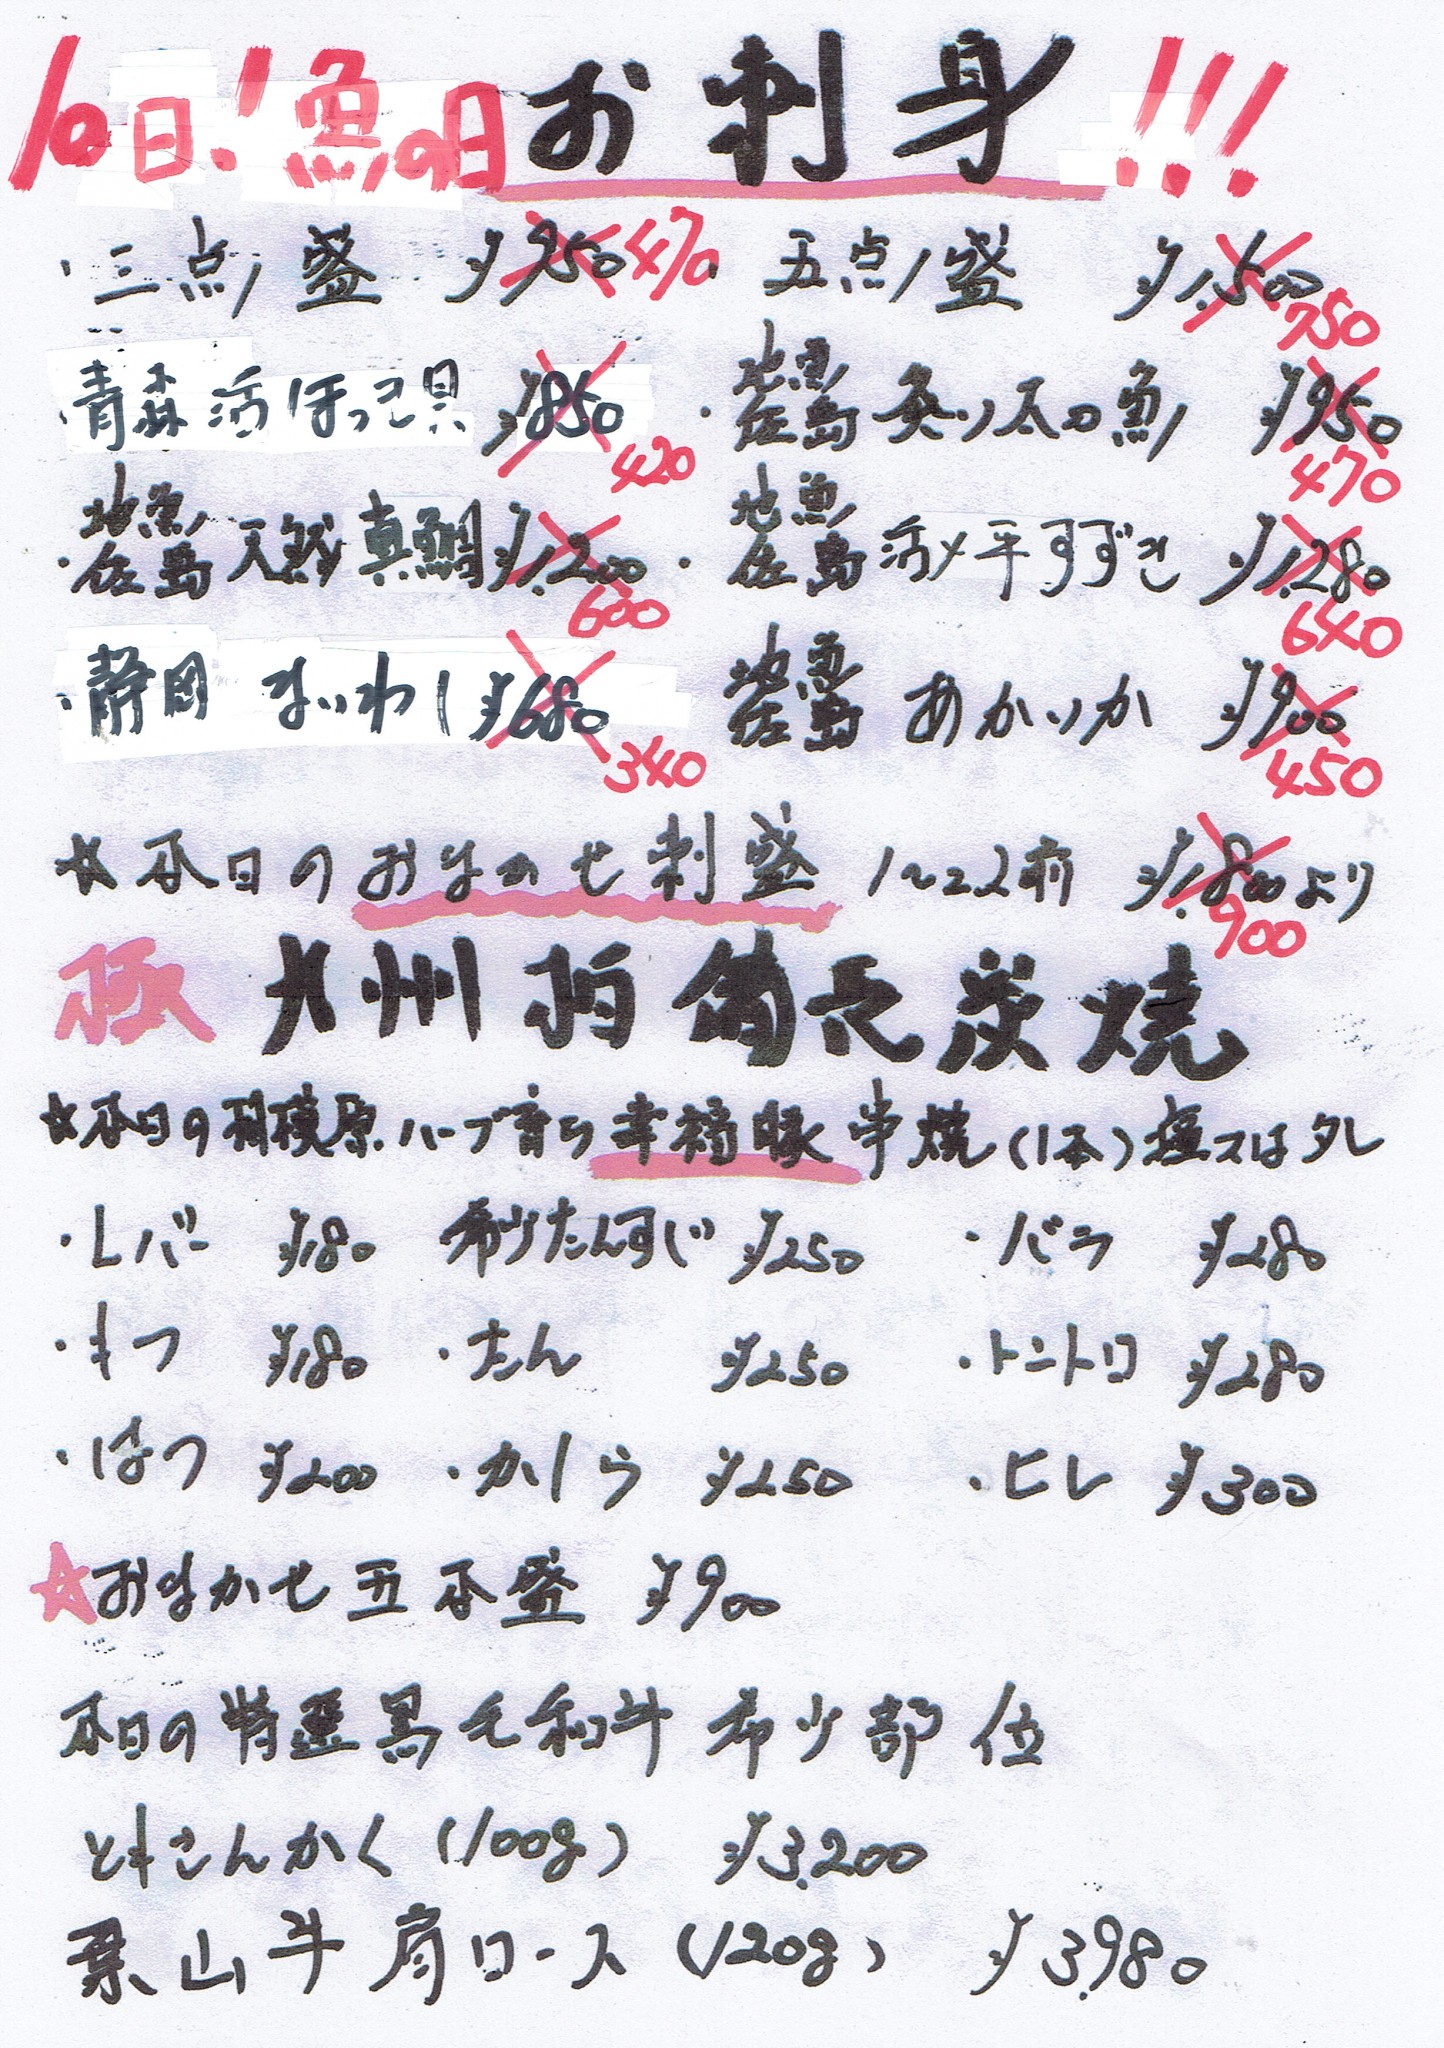 10日!魚の日 お刺身!!!
・三点盛 ¥950 470 ・五点盛 ¥1,500 750
・青森 活ほっき貝 ¥850 420 ・地魚 佐島 炙り太刀魚 ¥950 470
・地魚 佐島 天然 真鯛 ¥1,200 600 ・地魚 佐島 活〆平すずき ¥1,280 640
・静岡 まいわし ¥680 340 地魚 佐島 あかいか ¥900 450
☆本日のおまかせ刺盛 1〜2人前 ¥1,800より 900
極 九州 備長炭焼
☆本日の相模原ハーブ育ち幸福豚串焼(1本)塩又はタレ
・レバー ¥180 希少たんすじ ¥250 ・バラ ¥280
・もつ ¥180 ・たん ¥250 ・トントロ ¥280
・はつ ¥200 ・かしら ¥250 ・ヒレ ¥300
☆おまかせ五本盛 ¥900
本日の特選黒毛和牛希少部位
ともさんかく(100g) ¥3,200
葉山牛肩ロース(120g) ¥3,980